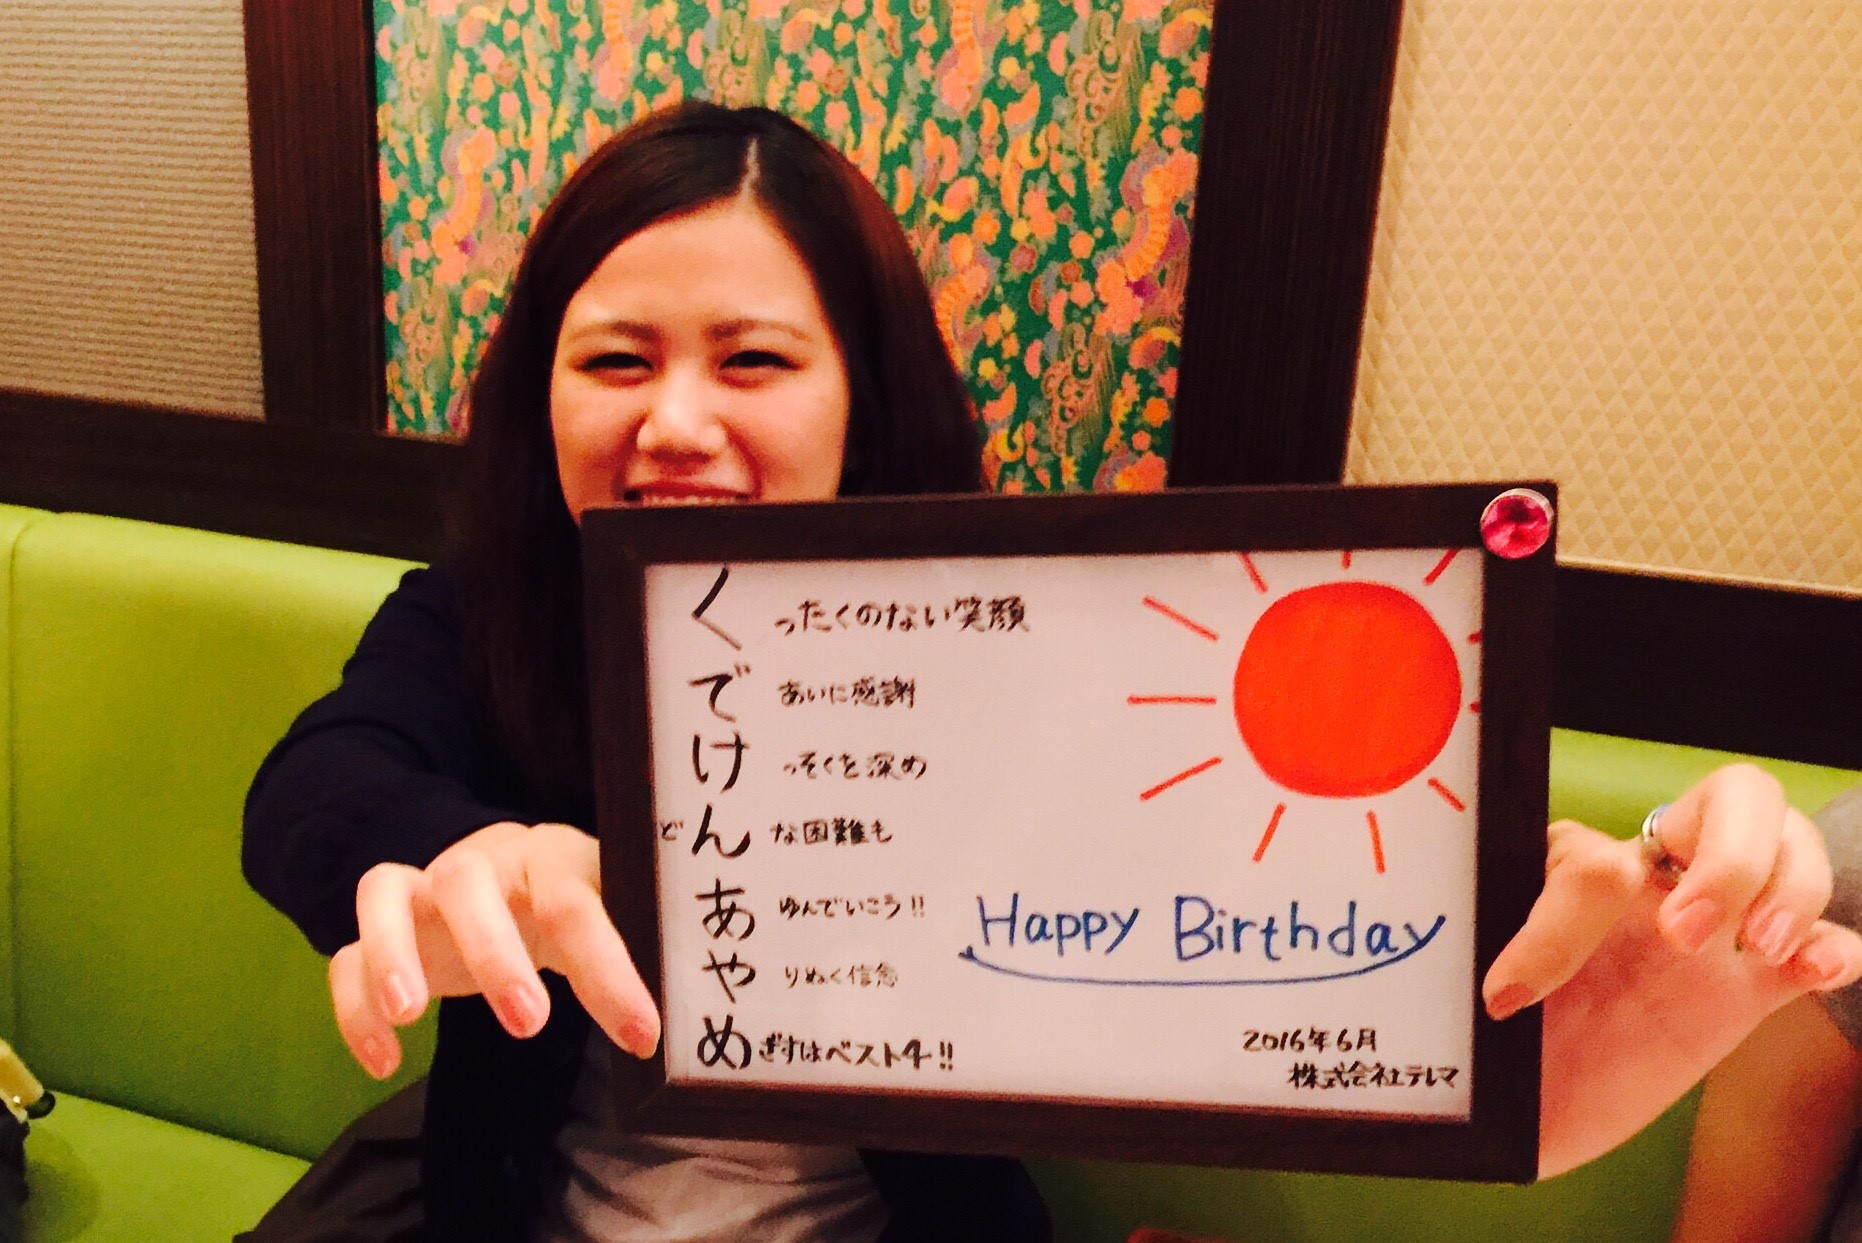 くったくのない笑顔
であいに感謝
けっそくを深め
どんな困難も
あゆんでいこう!!
やりぬく信念
めざすはベスト4!!
Happy Birthday
2016年6月
株式会社テレマ